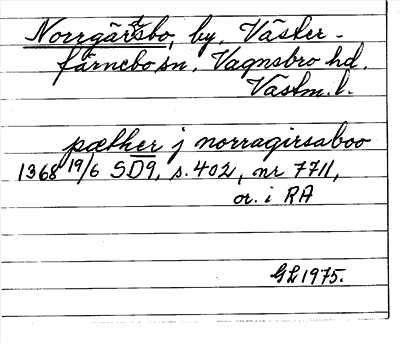 Norrgärdsbo, by, Väster-
färnebo sn, Vagnsbro hd.
Västm. l.
pæther j norragirsaboo
1368 19/6 SD9, s. 402, nr 7711,
or. i RA
GL 1975.